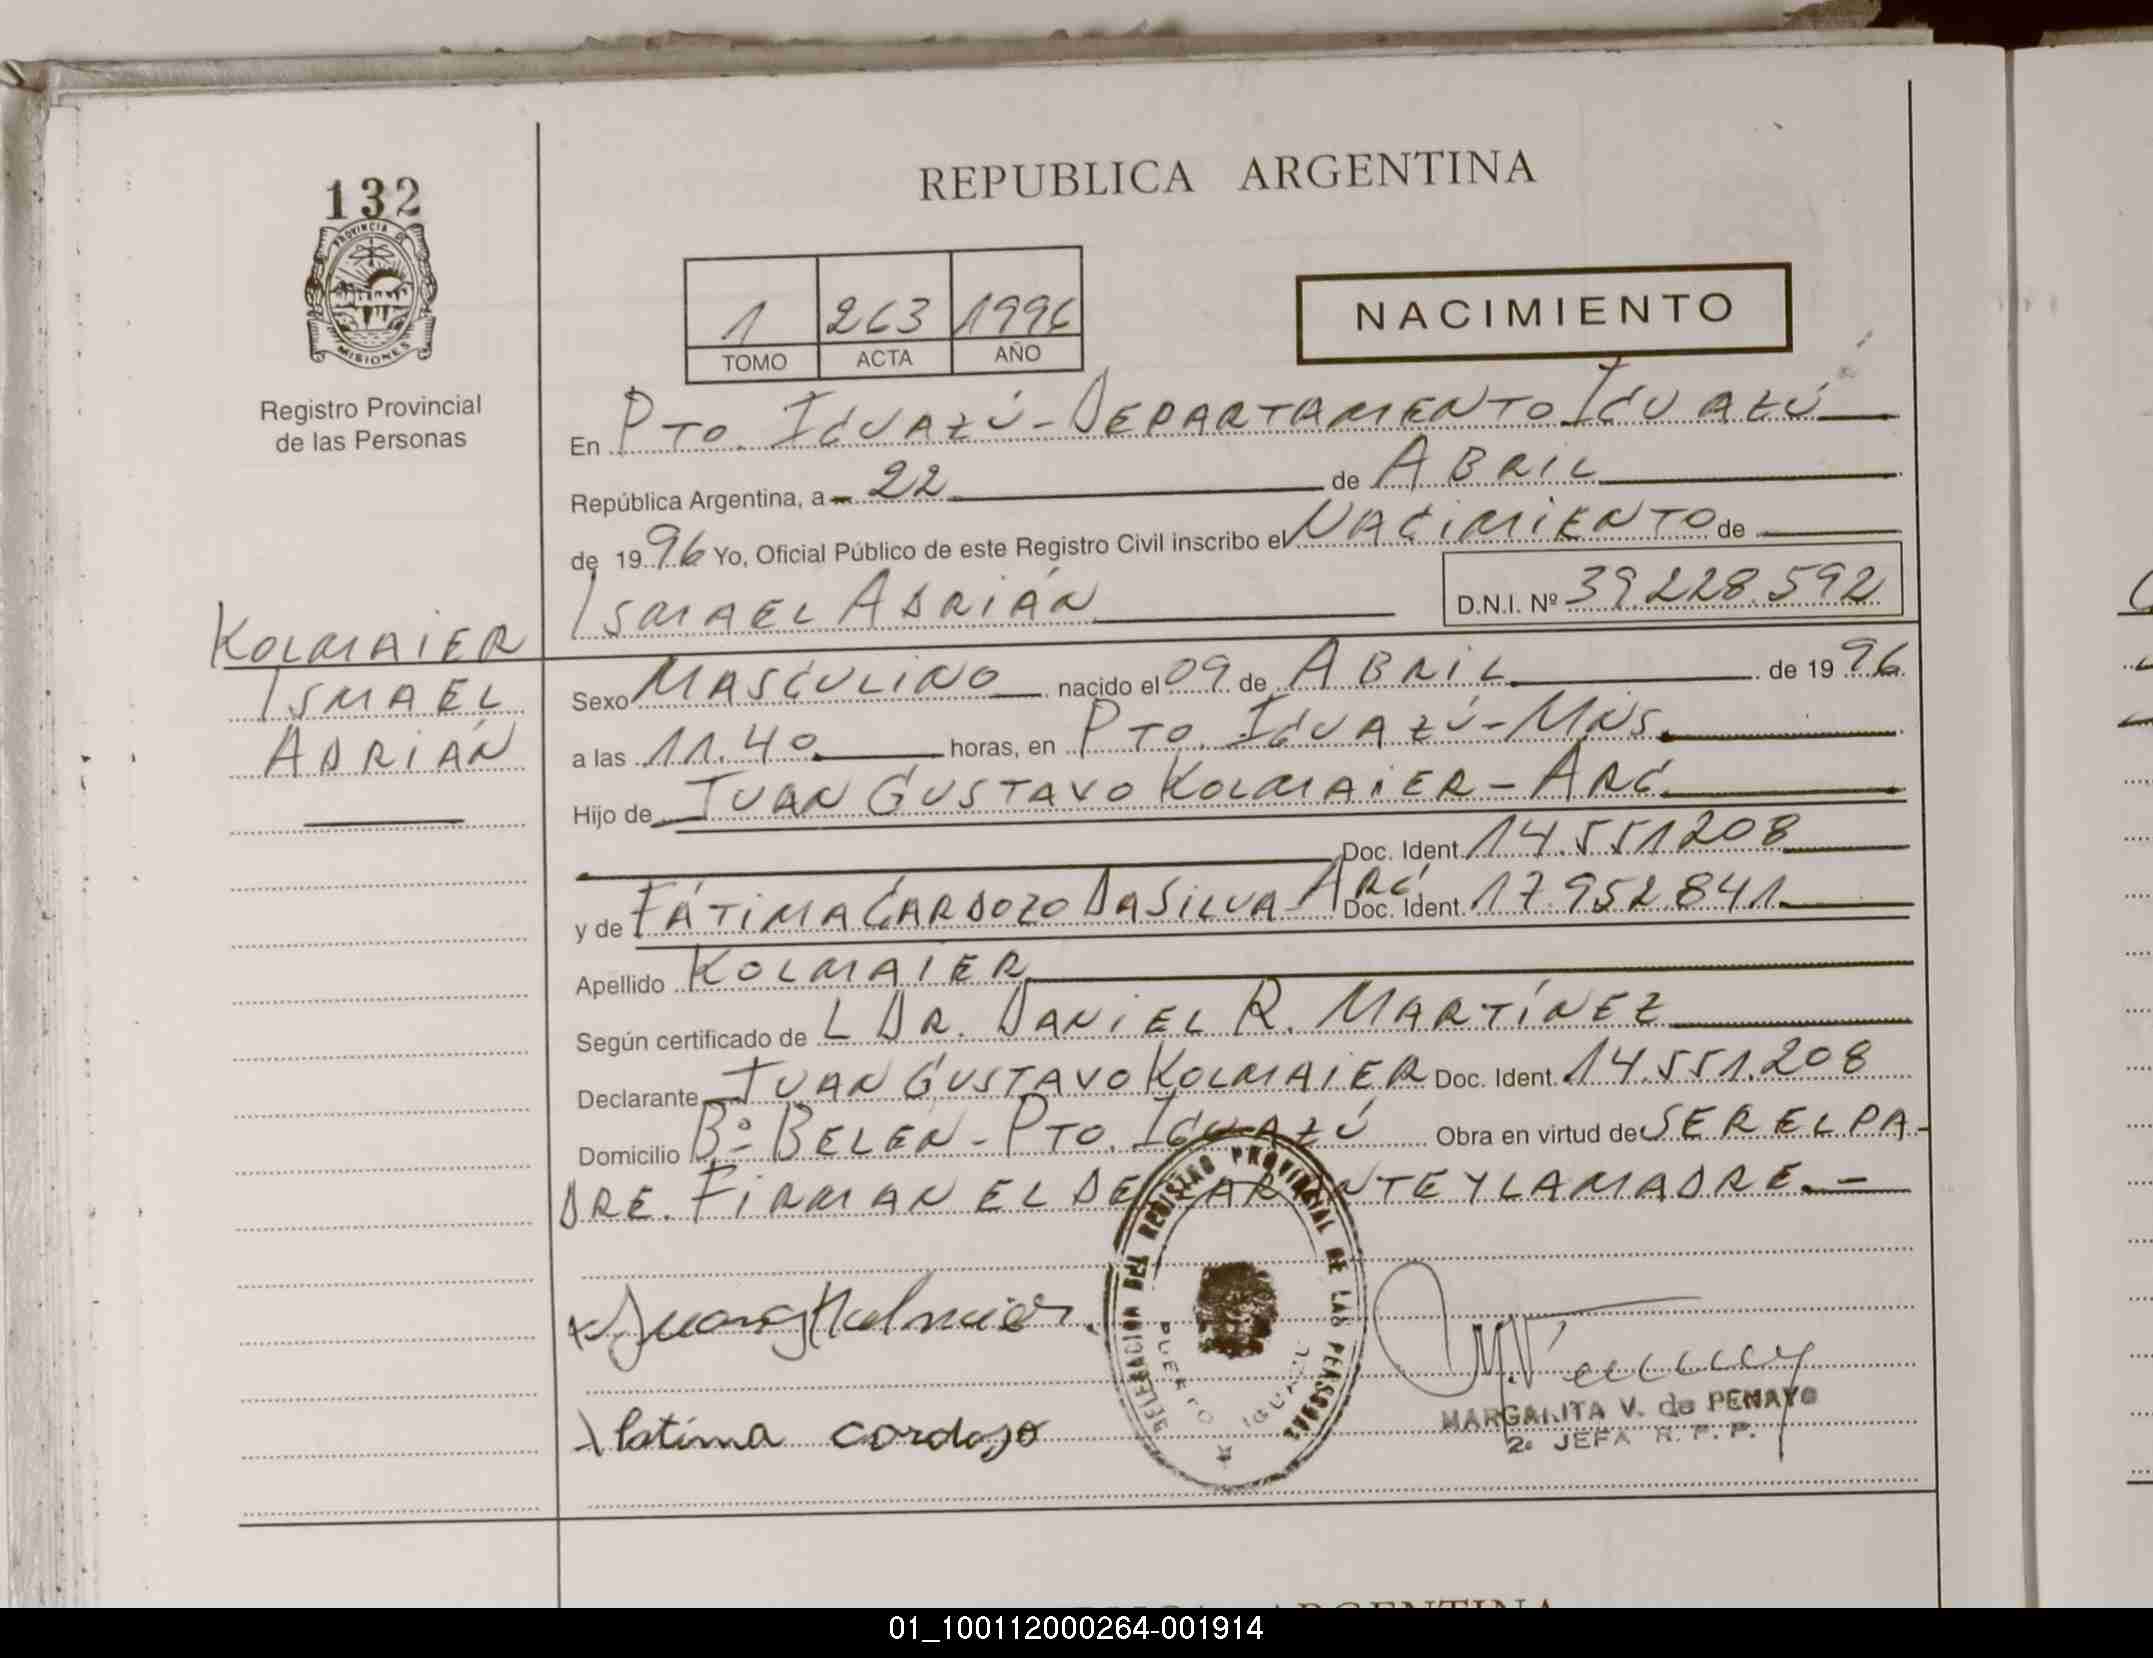 132
PROVINCIA DE
MISIONES
Registro Provincial
de las Personas
KOLMAIER
ISMAEL
ADRIÁN
REPUBLICA ARGENTINA
1 263 1996
TOMO ACTA AÑO
NACIMIENTO
En PTO. IGUAZÚ - DEPARTAMENTO IGUAZÚ
República Argentina, a 22 de ABRIL
de 1996 Yo, Oficial Público de este Registro Civil inscribo el NACIMIENTO de
ISMAEL ADRIÁN D.N.I. Nº 39.228.592
Sexo MASCULINO nacido el 09 de ABRIL de 1996
a las 11.40 horas, en PTO. IGUAZÚ - MNS.
Hijo de JUAN GUSTAVO KOLMAIER - ARG.
Doc. Ident. 14.551208
y de FÁTIMA CARDOZO DA SILVA - ARG. Doc. Ident. 17.952.841
Apellido KOLMAIER
Según certificado de L DR. DANIEL R. MARTÍNEZ
Declarante JUAN GUSTAVO KOLMAIER Doc. Ident. 14.551.208
Domicilio Bº BELEN - PTO. IGUAZÚ Obra en virtud de SER EL PA-
DRE. FIRMAN EL DECLARANTE Y LA MADRE. -
DELEGACION DEL REGISTRO PROVINCIAL DE LAS PERSONAS
PUERTO IGUAZU
Juan G Kolmaier.
fatima cardozo
MARGARITA V. de PENAYO
2º JEFA R. P. P.
ARGENTINA
01_100112000264-001914